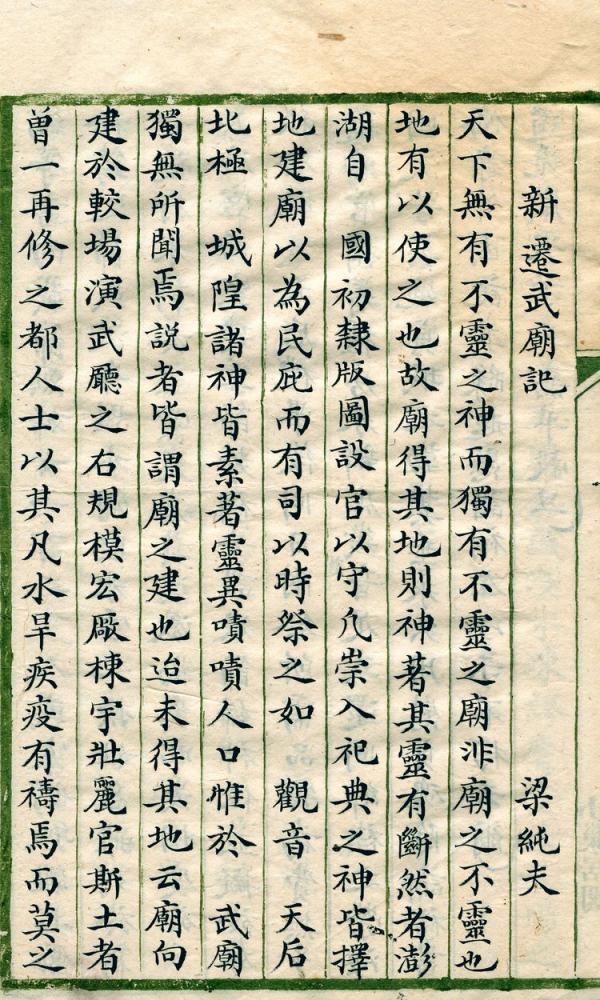 新遷武廟記 梁純夫
天下無有不靈之神而獨有不靈之廟非廟之不靈也
地有以使之也故廟得其地則神著其靈有斷然者澎
湖自 國初隸版圖設官以守凡崇入祀典之神皆擇
地建廟以為民庇而有司以時祭之如 觀音 天后
北極 城隍諸神皆素著靈異嘖嘖人口惟於 武廟
獨無所聞焉説者皆謂廟之建也迨未得其地云廟向
建於較場演武廳之右規模宏厰棟宇壯麗官斯土者
曽一再修之都人士以其凡水旱疾疫有禱焉而莫之